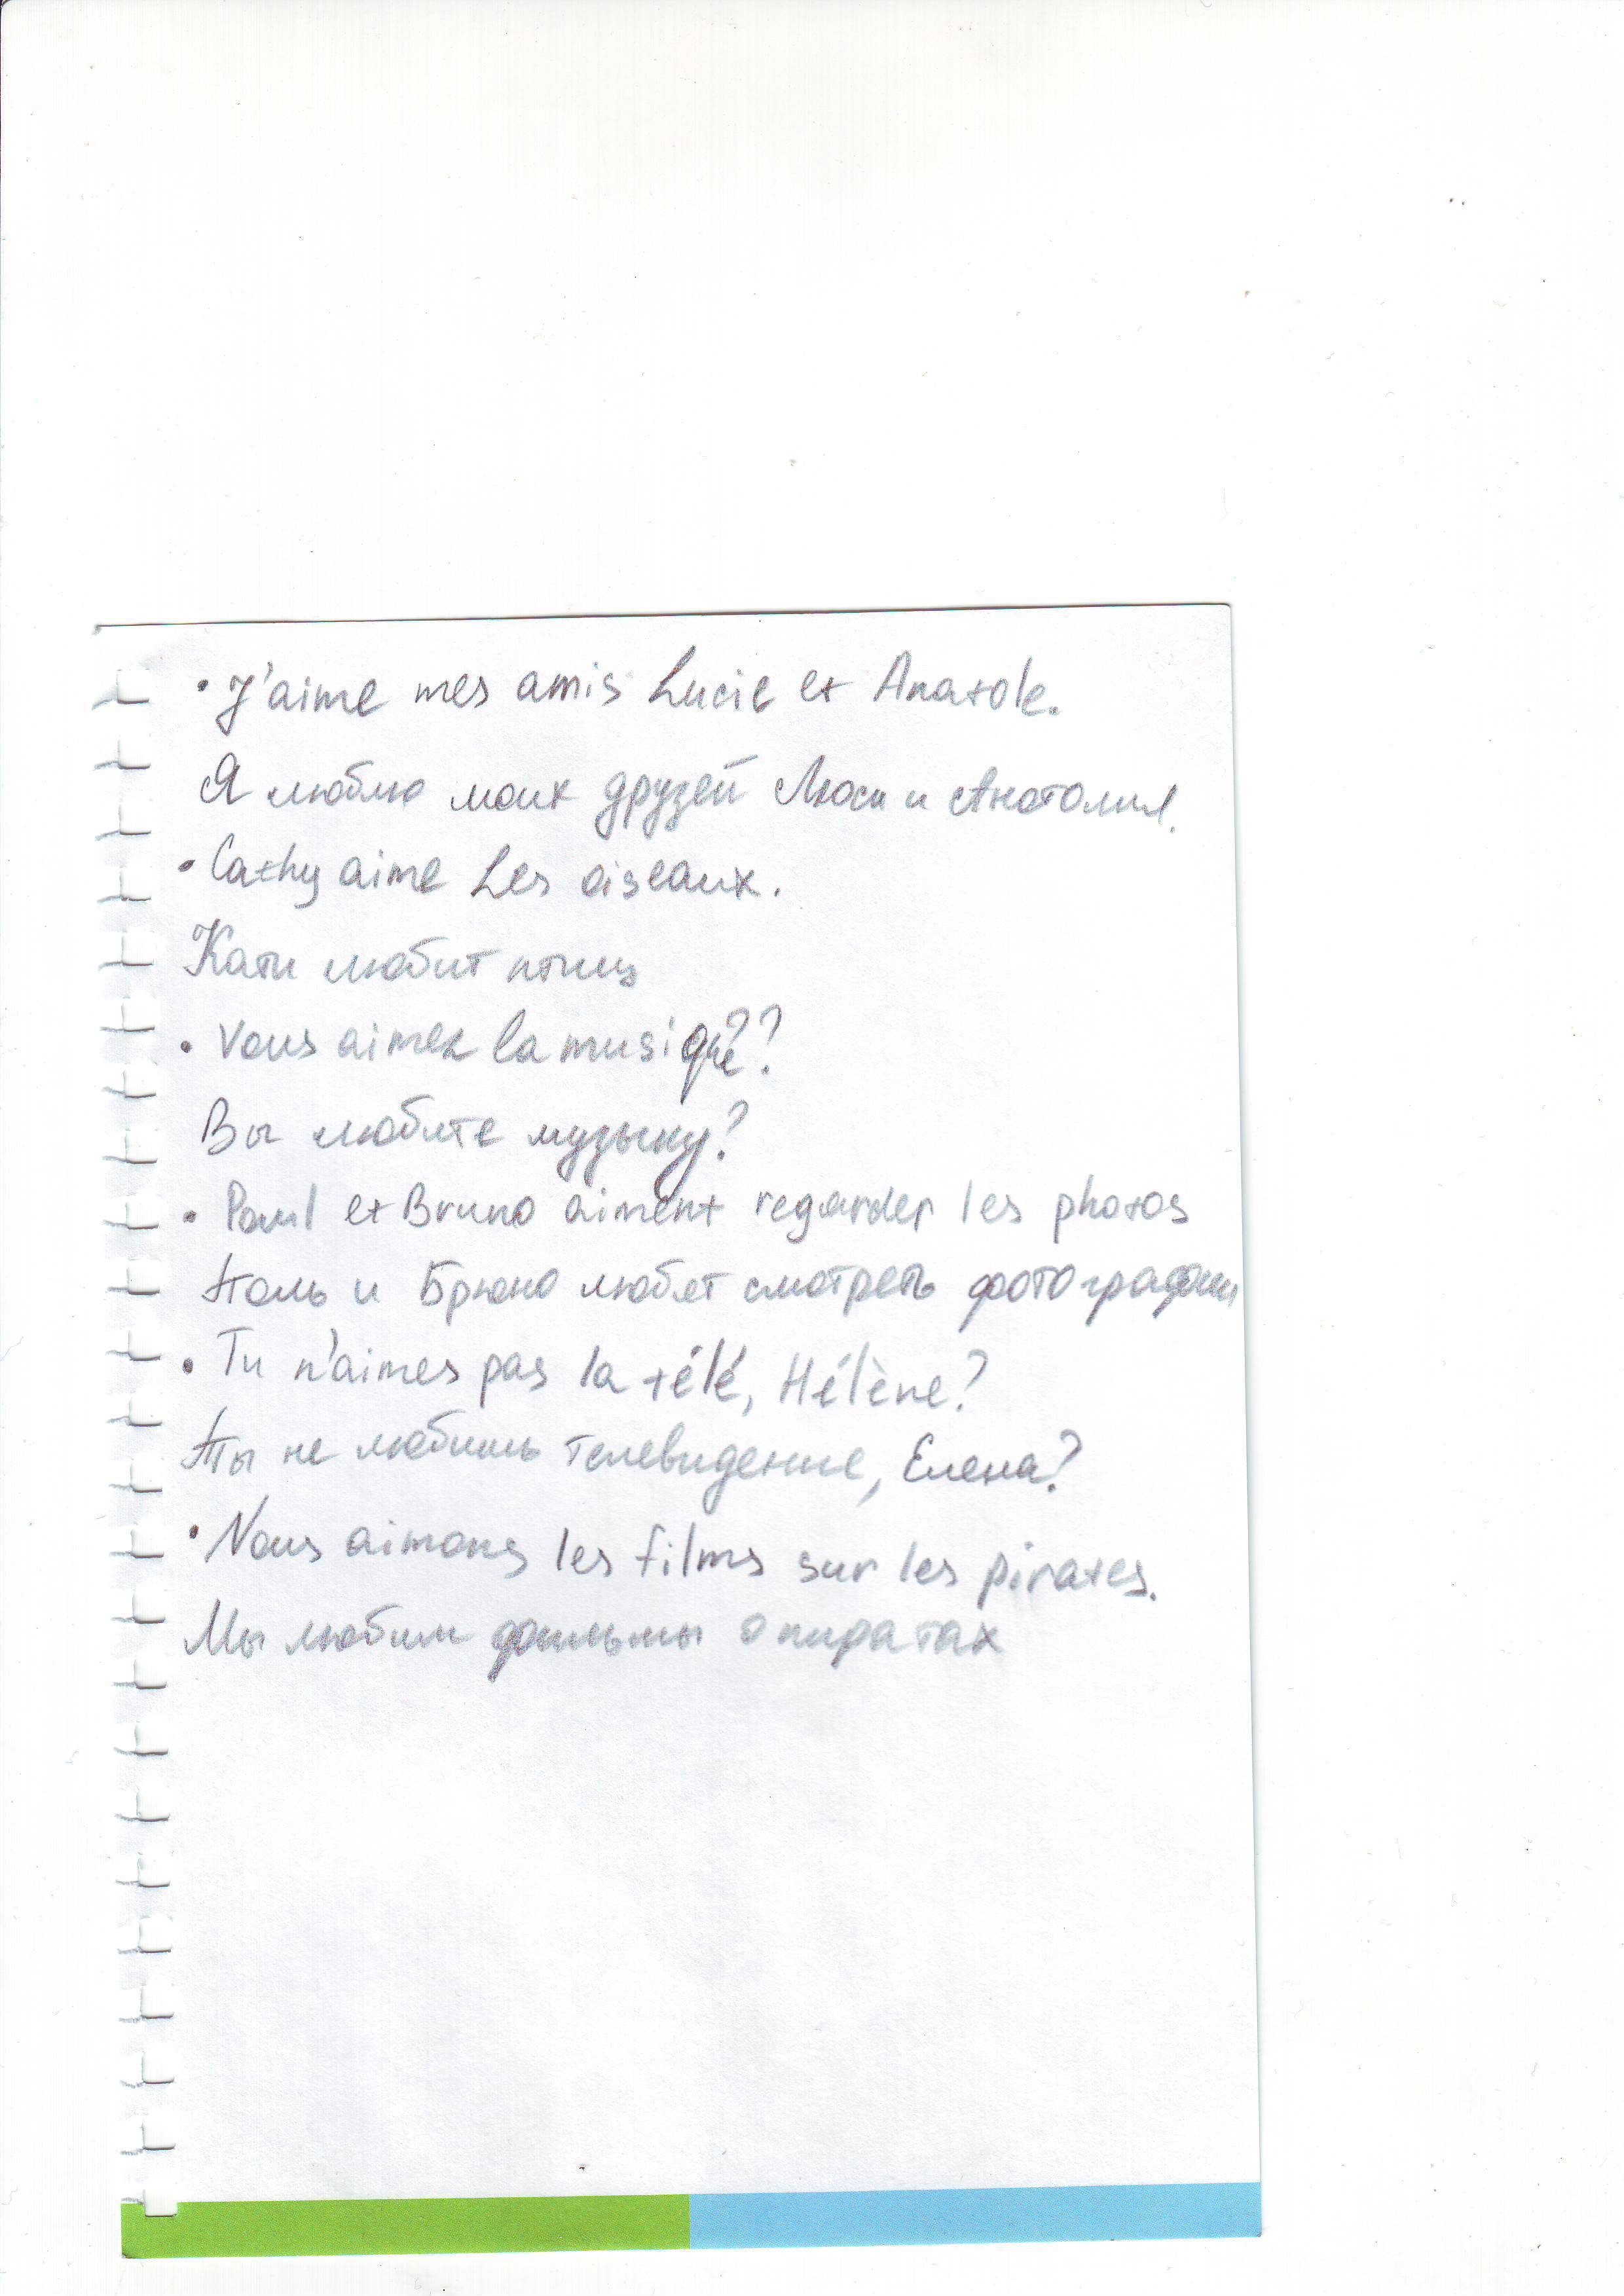 • J'aime mes amis Lucie et Anatole.
Я люблю моих друзей Люси и Анатолия.
• Cathy aime Les oiseaux.
Кати любит птиц
• Vous aimez la musique??
Вы любите музыку?
• Paul et Bruno aiment regarder les photos
Поль и Брюно любят смотреть фотографии
• Tu n'aimes pas la télé, Hélène?
Ты не любишь телевидение, Елена?
• Nous aimons les films sur les pirates.
Мы любим фильмы о пиратах